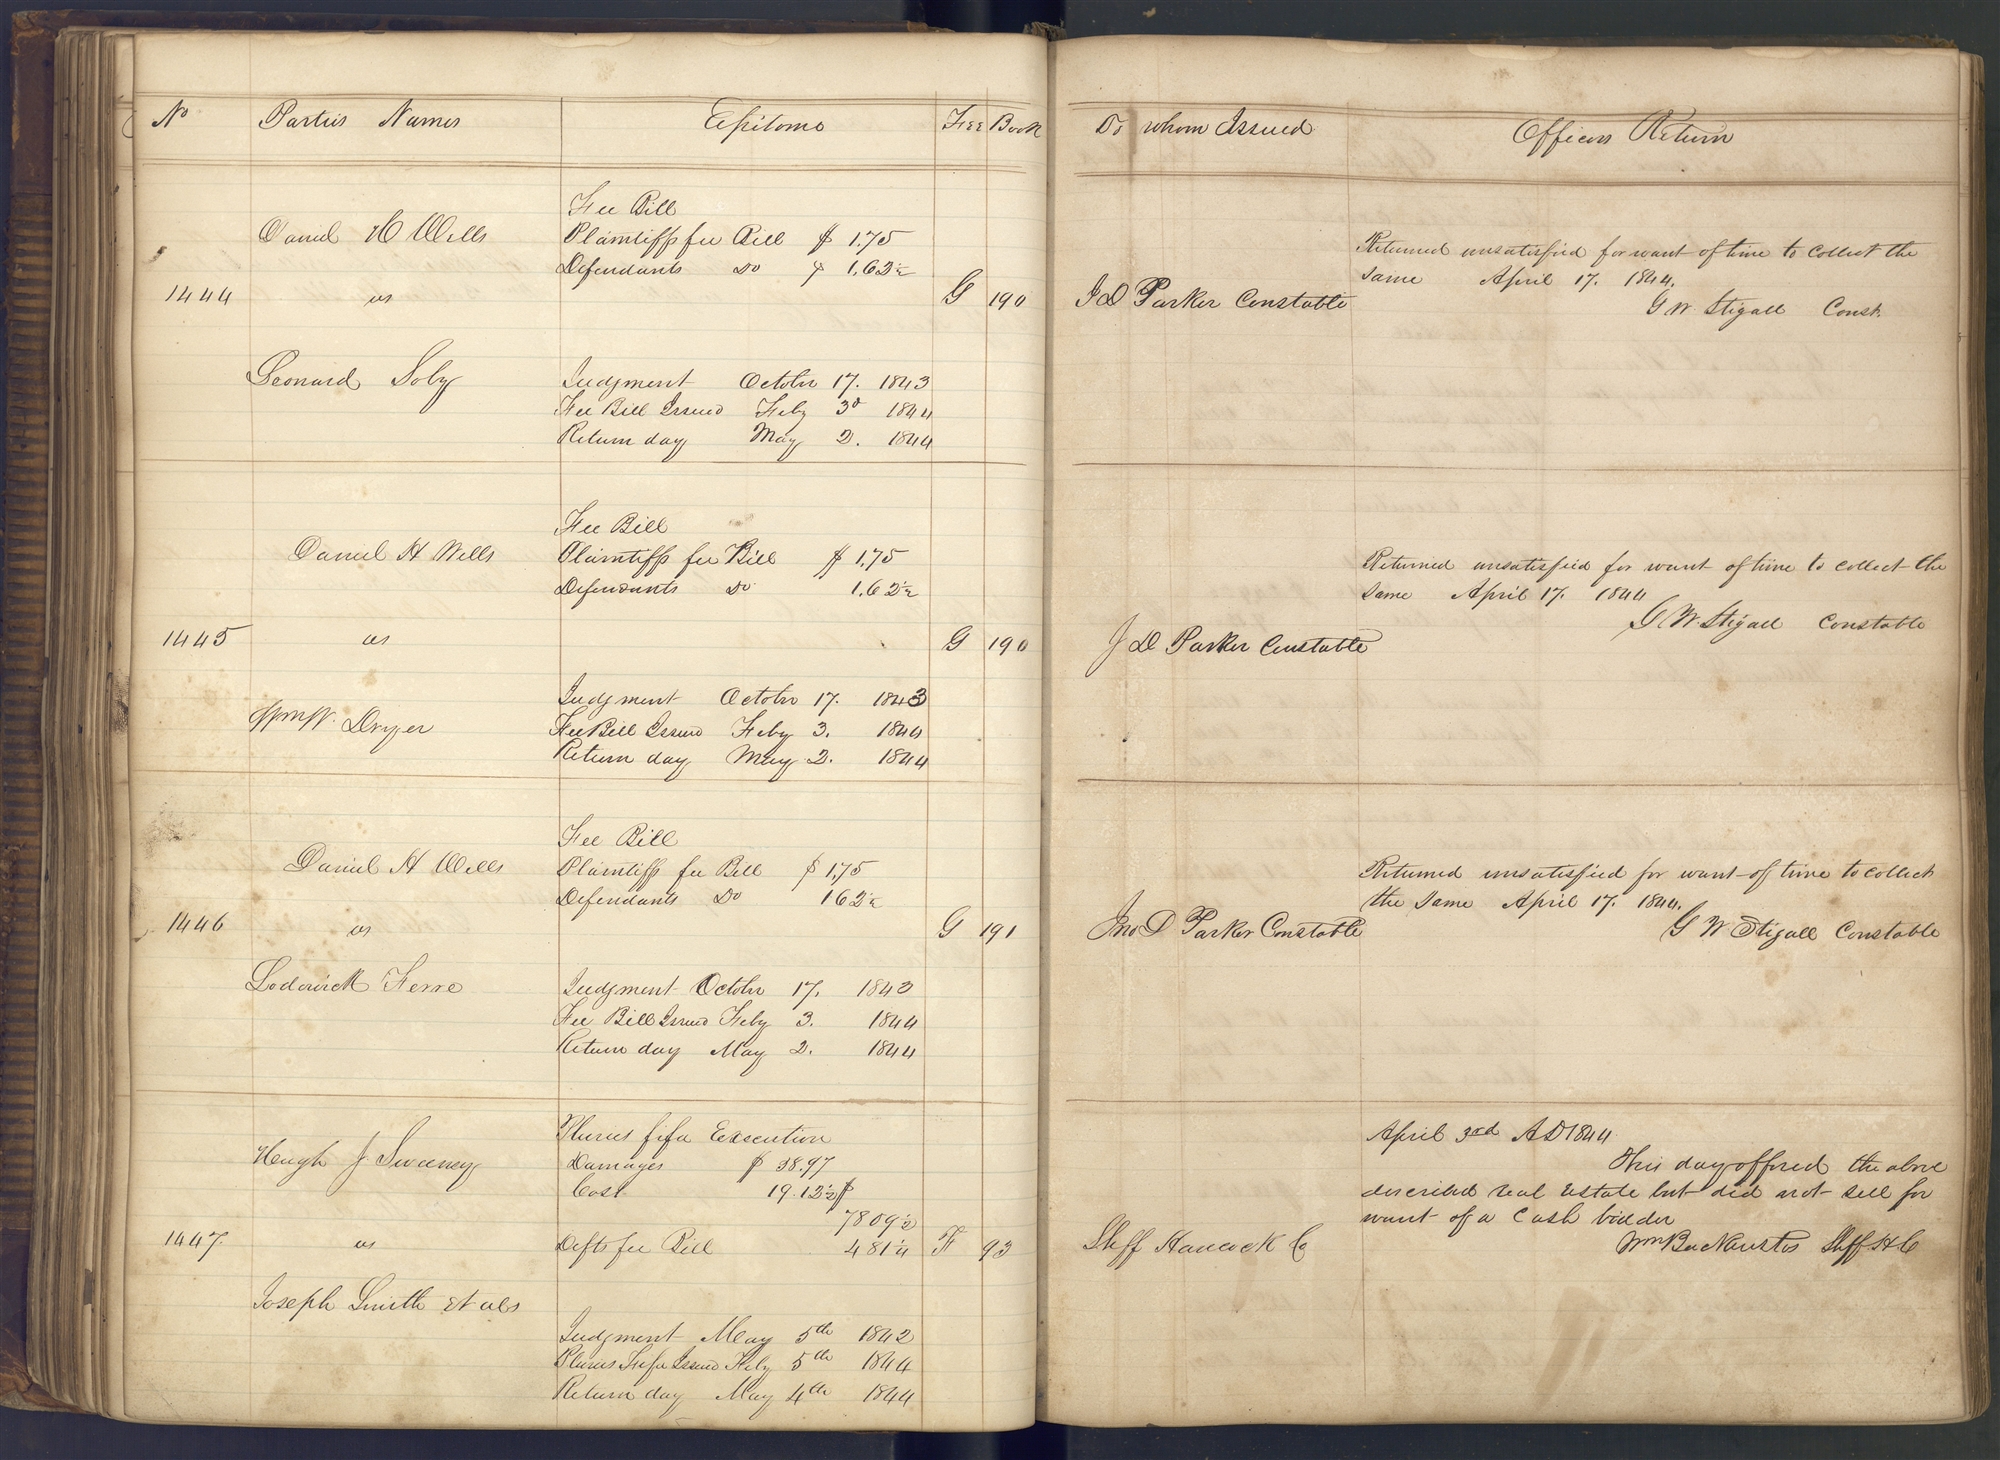 No Parties Names Epitome Fee Book
Daniel H Wells
vs
Leonard Soby
1444
Fee Bill
Plaintiffs fee Bill $ 1.75
Defendants Do $ 1.62½
Judgment October 17. 1843
Fee Bill Issued Feby 3d 1844
Return day May 2. 1844
G 190
Daniel H Wells
1445 vs
Dryer
Fee Bill
Plaintiffs fee Bill $ 1.75
Defendants Do 1.62½
Judgment October 17. 1843
Fee Bill Issued Feby 3. 1844
Return day May 2. 1844
G 190
Daniel H Wells
1446 vs
Loderick Ferre
Fee Bill
Plaintiffs fee Bill $ 1.75
Defendants Do 1 62½
Judgment October 17. 1843
Fee Bill Issued Feby 3. 1844
Return day May 2. 1844
G 191
Hugh J Sweeney
1447. vs
Joseph Smith et als
Plurius fifa Execution
Damages $ 58.97
Cost 19.12½ $
78 09½
Defts fee Bill 4 81¼
Judgment May 5th 1842
Plurius Fifa Issued Feby 5th 1844
Return day May 4th 1844
F 93
To whom Issued Officers Return
J D Parker Constable
Returned unsatisfied for want of time to collect the
same April 17. 1844.
G W Stigall Const.
J D Parker Constable
Returned unsatisfied for want of time to collect the
same April 17. 1844
G. W. Stigall Constable
Jno D Parker Constable
Returned unsatisfied for want of time to collect
the same April 17. 1844.
G W Stigall Constable
Shff Hancock Co
April 3rd AD 1844
This day offered the above
described real Estate but did not sell for
want of a Cash bidder
Wm Backenstos Shff H C